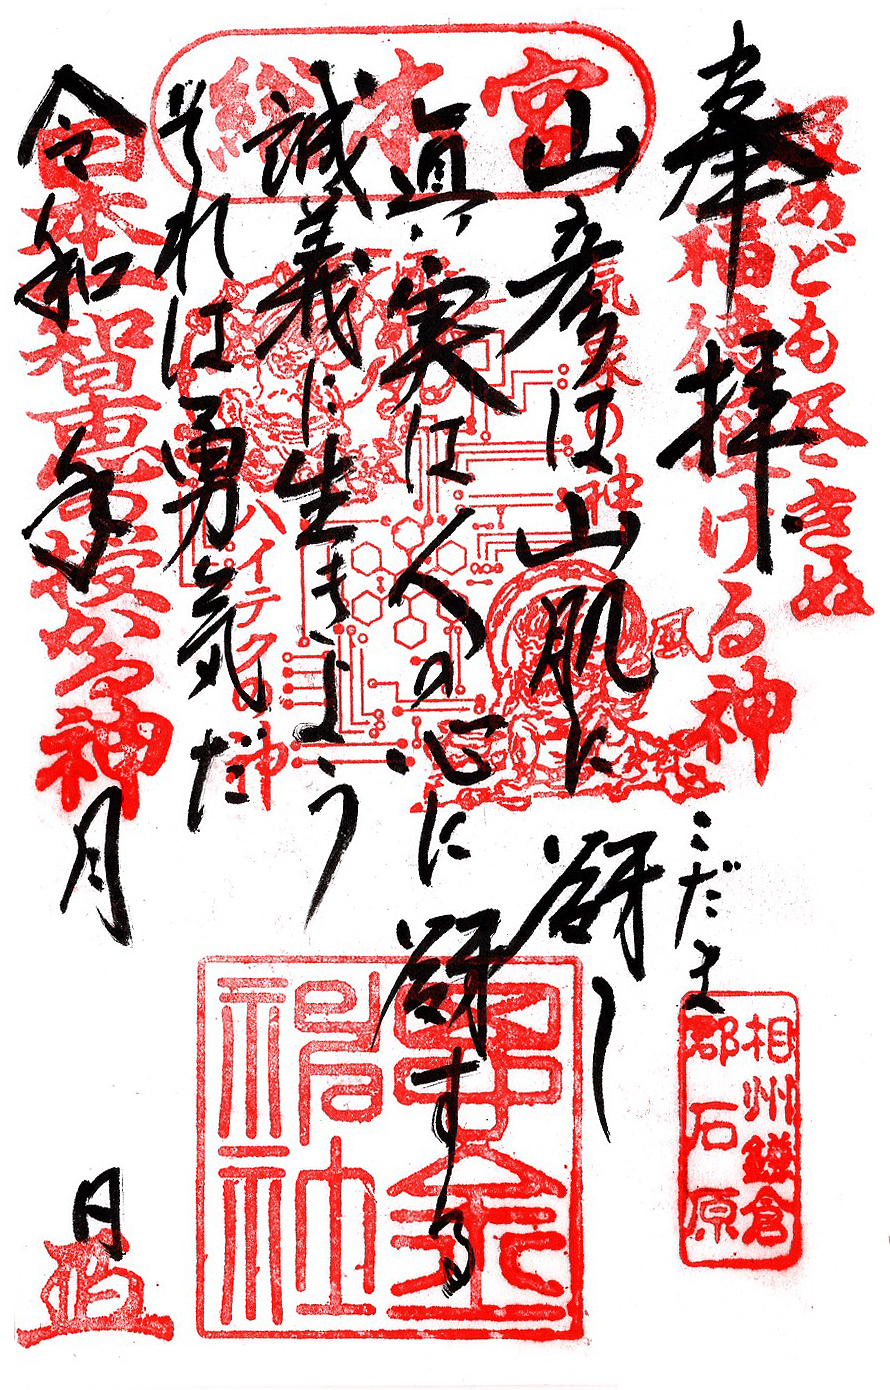 汲めども尽きぬ
福徳授ける神
奉拝
こだま
総本宮
山彦は山肌に谺し
眞実は人の心に谺する
誠義に生きよう
それは勇気だ
令和 年 月 日
氣象の神
風
ハイテクの神
日本一智恵を授かる神
相州鎌倉
郡石原